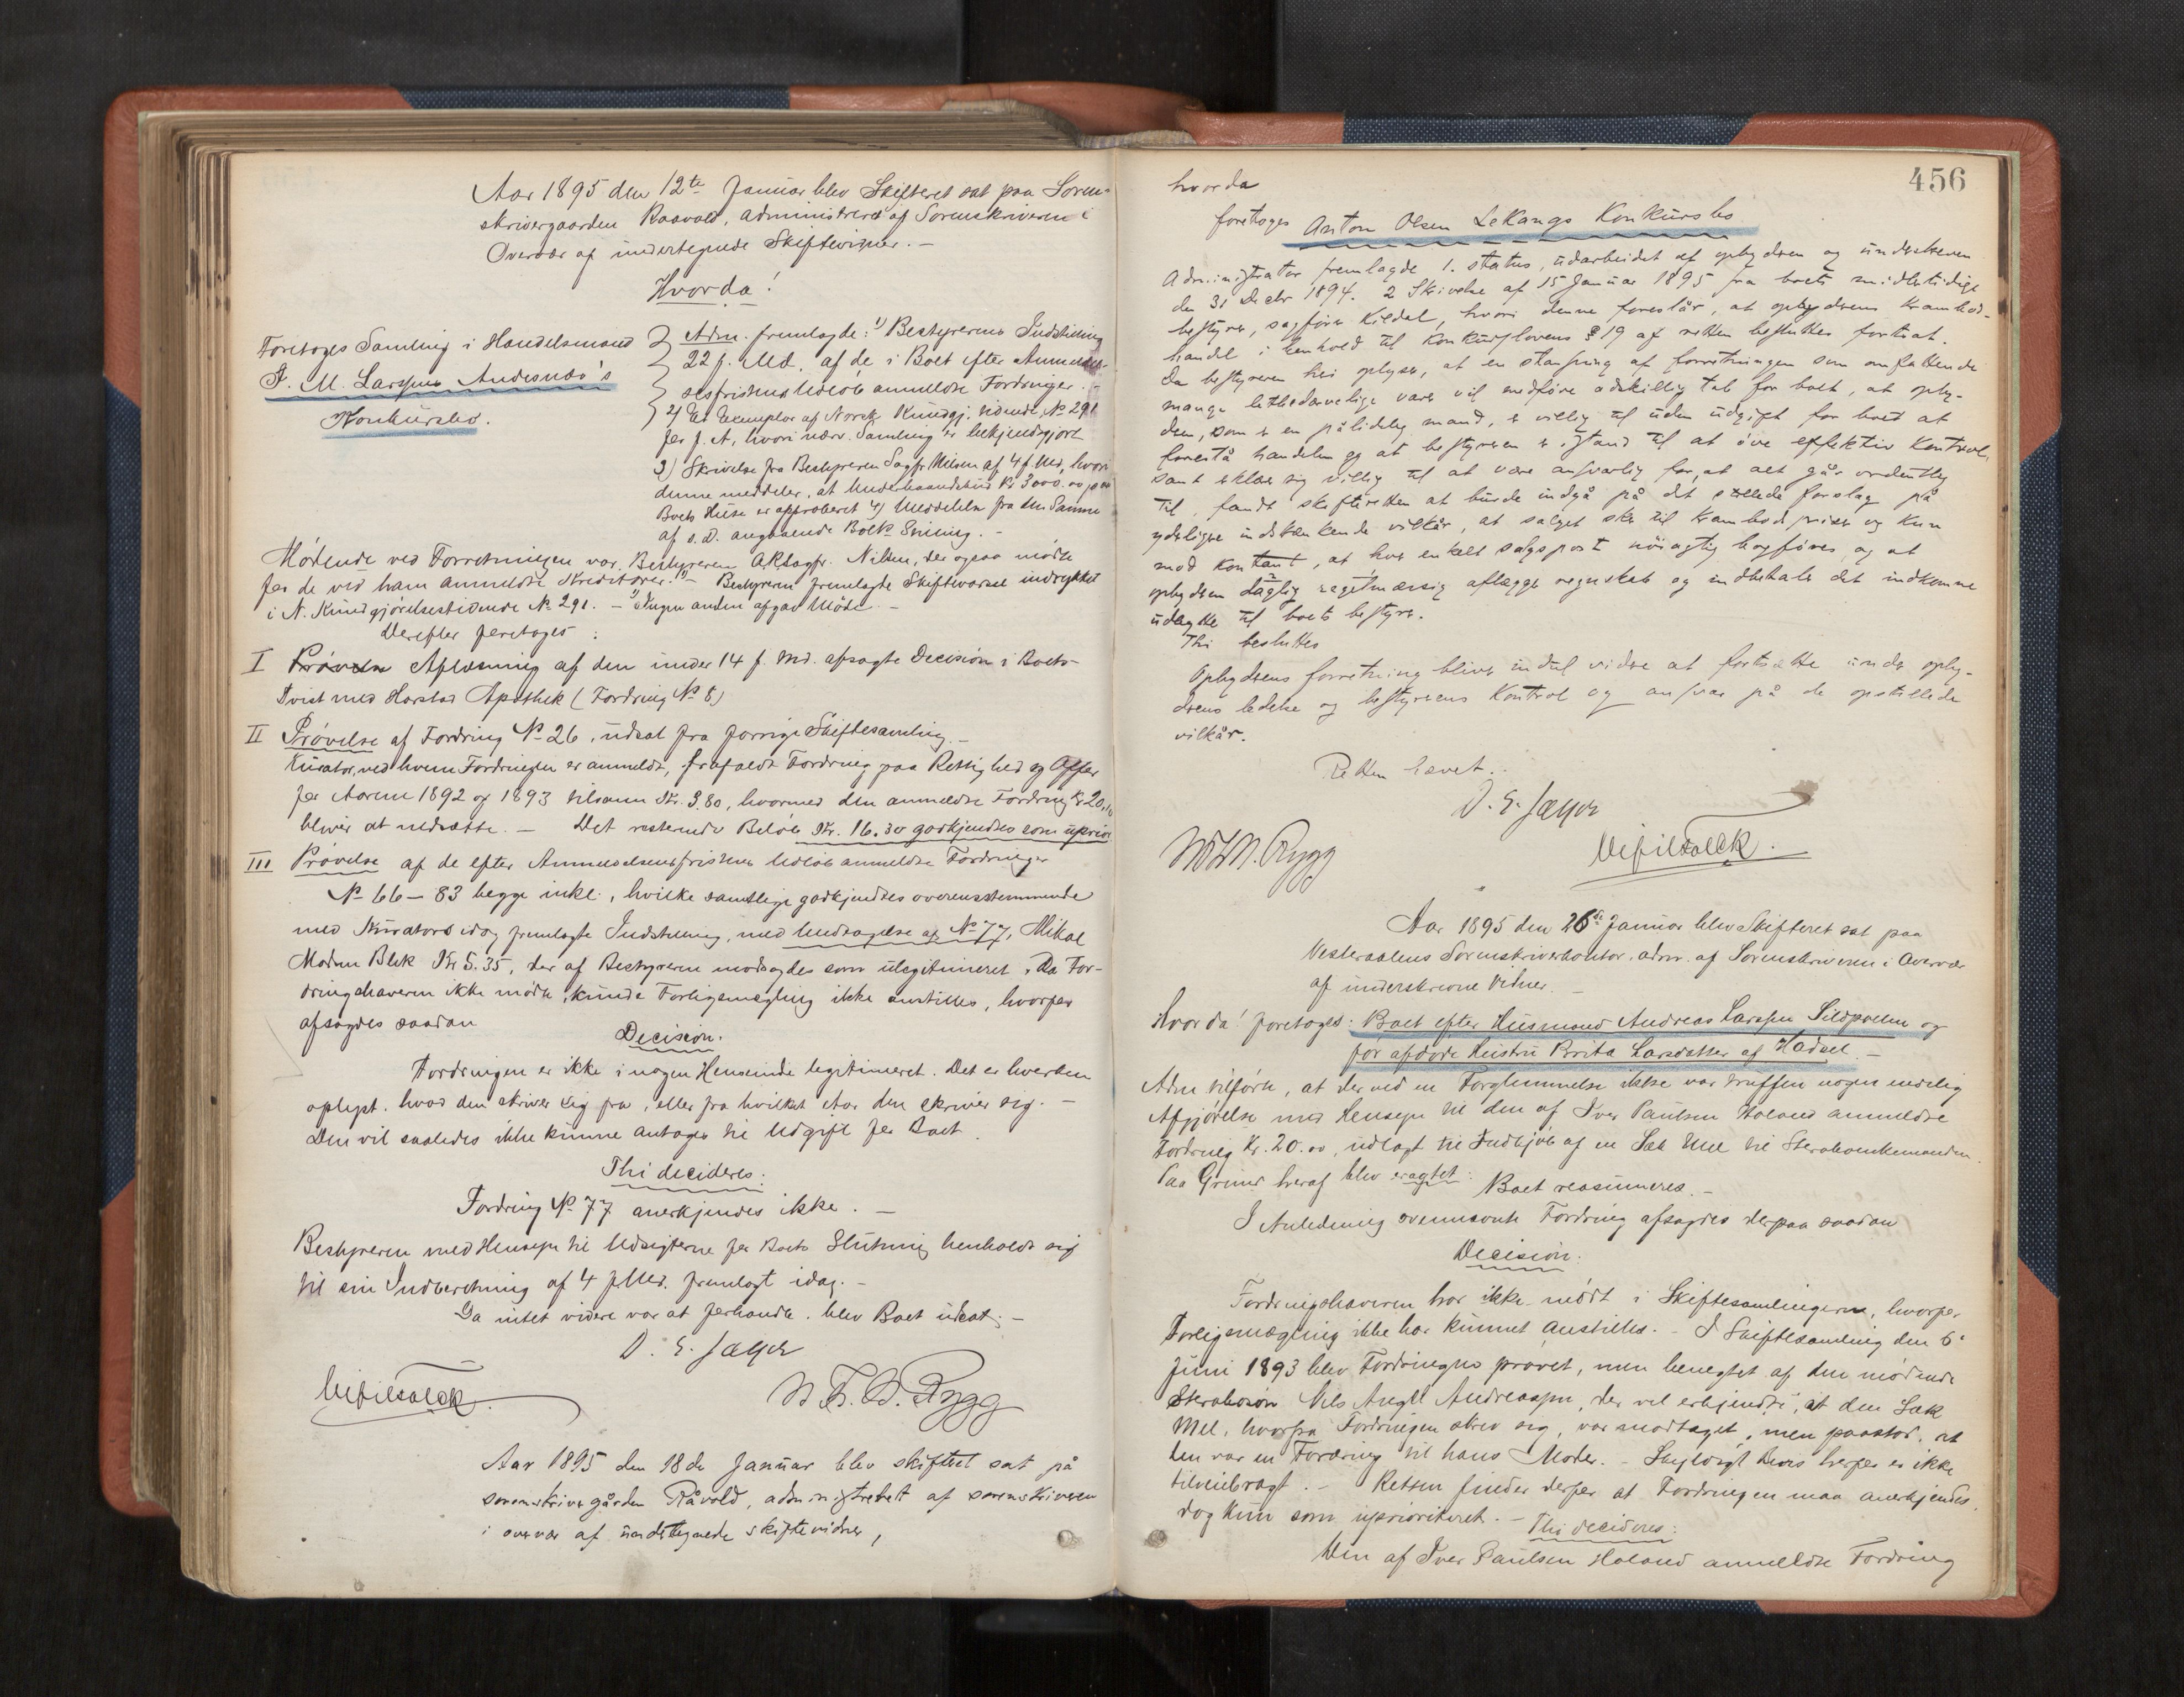 Aar 1895 den 12te Januar blev Skifteret sat paa Soren-
skrivergaarden Raavold, administreret af Sorenskriveren i
Overvær af undertegnede Skiftevidner. —
Hvorda!
Foretoges Samling i Handelsmand
J. M. Larssens Andesnæs's
Konkursbo.
Adm. fremlagde: 1) Bestyrerens Indstilling
22 f. Md. af de i Boet efter Anmeldel-
sesfristens Udløb anmeldte Fordringer. —
2) Et Exemplar af Norsk Kundgj. tidende No 291
for f. A, hvori nærv. Samling er bekjendtgjort
3) Skrivelse fra Bestyreren Sagfr. Nilsen af 4 f. Md, hvori
denne meddeler, at Underhaandsbud Kr 3000.00 paa
Boets Huse er approberet 4) Meddelelse fra den Samme
af s. D. angaaende Boets Slutning. —
Mødende ved Forretningen var Bestyreren ORsagfr. Nilsen, der ogsaa mødte
for de ved ham anmeldte Kreditorer. 1) — Bestyreren fremlagte Skiftevarsel indrykket
i N. Kundgjørelsestidende No 291. — 2) Ingen anden afgav Møde. —
Derefter foretoges:
I Prøvelse Aflæsning af den under 14 f. Md. afsagte Decision i Boets
Tvist med Harstad Apothek (Fordring No 8)
II Prøvelse af Fordring No 26, udsat fra forrige Skiftesamling. —
Kurator, ved hvem Fordringen er anmeldt, frafaldt Fordring paa Rettighed og Offer
for Aarene 1892 og 1893 tilsam Kr. 3.80, hvormed den anmeldte Fordring Kr 20,10
bliver at nedsætte. — Det resterende Beløb Kr. 16.30 godkjendtes som uprior.
III Prøvelse af de efter Anmeldelsesfristens Udløb anmeldte Fordringer
No 66 — 83 begge inkl., hvilke samtlige godkjendtes overensstemmende
med Kurators idag fremlagte Indstilling, med Undtagelse af No 77, Mikal
Madsen Blek Kr 5.35, der af Bestyreren modsagdes som ulegitimeret. Da For-
dringshaveren ikke mødte, kunde Forligsmægling ikke anstilles, hvorfor
afsagdes saadan
Decision.
Fordringen er ikke i nogen Henseende legitimeret. Det er hverken
oplyst, hvad den skriver sig fra, eller fra hvilket Aar den skriver sig. —
Den vil saaledes ikke kunne antages til Udgift for Boet.
Thi decideres:
Fordring No 77 anerkjendes ikke. —
Bestyreren med Hensyn til Udsigterne for Boets Slutning henholdt sig
til sin Indberetning af 4 f. Md. fremlagt idag. —
Da intet videre var at forhandle, blev Boet udsat. —
D. E. Jæger
N. Th. N. Rygg
Aar 1895 den 18de Januar blev skifteret sat på
sorenskrivergården Råvold, administreret af sorenskriveren
i overvær af undertegnede skiftevidner,
456
hvorda
foretoges Anton Olsen Lekangs Konkursbo
Administrator fremlagde 1. Status, udarbeidet af opbyderen og underskreven
den 31 Decbr 1894. 2 Skrivelse af 15 Januar 1895 fra boets midlertidige
bestyrer, sagfører Kildal, hvori denne foreslår, at opbyderens kramhod-
handel i henhold til Konkurslovens § 19 af retten besluttes fortsat.
Da bestyreren heri oplyser, at en stansning af forretningen som omfattende
mange letbedærvelige varer vil medføre adskillig tab for boet, at opby-
deren, som er en pålidelig mand, er villig til uden udgift for boet at
forestå handelen og at bestyreren er istand til at øve effektiv kontrol,
samt erklærer sig villig til at være ansvarlig for, at alt går ordentlig
til, fandt skifteretten at burde indgå på det stillede forslag på
yderligere indskrænkende vilkår, at salget sker til krambodpriser og kun
mod kontant, at hver enkelt salgspost nøiagtig bogføres og at
opbyderen daglig regelmæssig aflægger regnskab og indbetaler det indkomne
udbytte til boets bestyrer.
Thi besluttes
Opbyderens forretning bliver indtil videre at fortsætte under opby-
derens ledelse og bestyrerens Kontrol og ansvar på de opstillede
vilkår.
Retten hævet.
D. E. Jæger
N Th N. Rygg
Aar 1895 den 26de Januar blev Skifteret sat paa
Vesteraalens Sorenskriverkontor, adm. af Sorenskriveren i Overvær
af underskrevne Vidner. —
Hvorda! foretoges: Boet efter Husmand Andreas Larssen Sildpollen og
før afdøde Hustru Brita Larsdatter af Hadsel. —
Adm tilførte, at der ved en Forglemmelse ikke var truffen nogen endelig
Afgjørelse med Hensyn til den af Iver Paulsen Holand anmeldte
Fordring Kr. 20.00, udlagt til Indkjøb af en Sæk Mel til Stervboenkemanden.
Paa Grund heraf blev eragtet: Boet reassumeres. —
I Anledning ovennævnte Fordring afsagdes derpaa saadan
Decision.
Fordringshaveren har ikke mødt i Skiftesamlingerne, hvorfor
Forligsmægling ikke har kunnet anstilles. — I Skiftesamling den 6'
Juni 1893 blev Fordringen prøvet, men benegtet af den mødende
Stervbosøn Nils Angel Andreassen, der vel erkjendte, at den Sæk
Mel, hvorfra Fordringen skrev sig, var modtaget, men paastod, at
den var en Foræring til hans Moder. — Skyldigt Bevis herfor er ikke
tilveiebragt. — Retten finder derfor at Fordringen maa anerkjendes,
dog kun som uprioriteret. — Thi decideres:
Den af Iver Paulsen Holand anmeldte Fordring